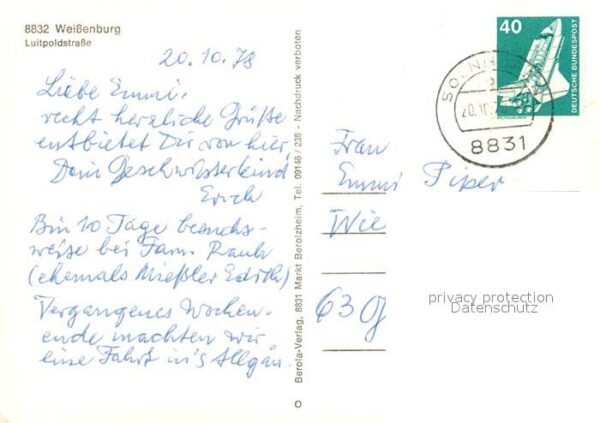 8832 Weißenburg
Luitpoldstraße
20.10.78
Liebe Emmi,
recht herzliche Grüße
entbietet Dir von hier,
Dein Geschwisterkind
Erich
Bin 10 Tage besuchs-
weise bei Fam. Rauh
(ehemals Mießler Edith)
Vergangenes Wochen-
ende machten wir
eine Fahrt in's Allgäu.
Berola-Verlag, 8831 Markt Berolzheim, Tel. 09146/236 - Nachdruck verboten
40
DEUTSCHE BUNDESPOST
20.10.
8831
Frau
Emmi Piper
Wie
630
privacy protection
Datenschutz